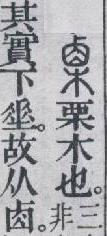 㮚栗木也。三
非
其實下垂。故从卤。